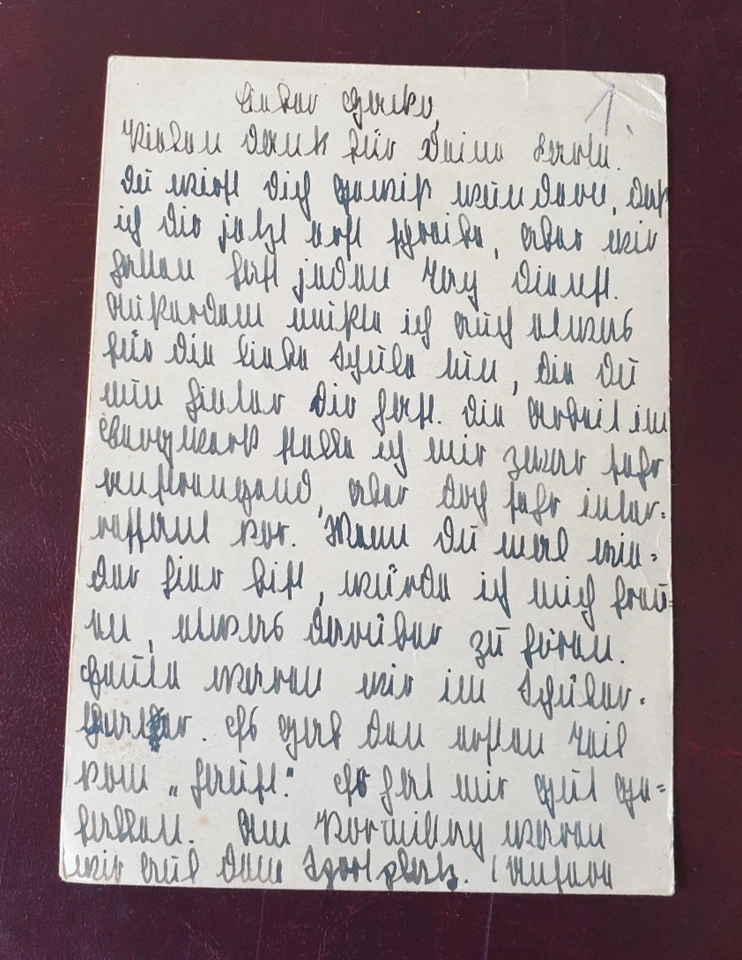 1.
Lieber
Vielen Dank für Deine Karte.
Du wirst Dich gewiß wundern, daß
ich Dir jetzt erst schreibe, aber wir
hatten fast jeden Tag Dienst.
Außerdem mußte ich auch etwas
für die liebe Schule tun, die Du
nun hinter Dir hast. Die Arbeit im
Bergwerk stelle ich mir zwar sehr
anstrengend, aber doch sehr inter-
essant vor. Wenn Du mal wie-
der hier bist, würde ich mich freu-
en, etwas darüber zu hören.
Heute waren wir im Schüler-
theater. Es gab den ersten Teil
vom „Faust.“ Es hat mir gut ge-
fallen. Am Vormittag waren
wir auf dem Sportplatz. (Unsere